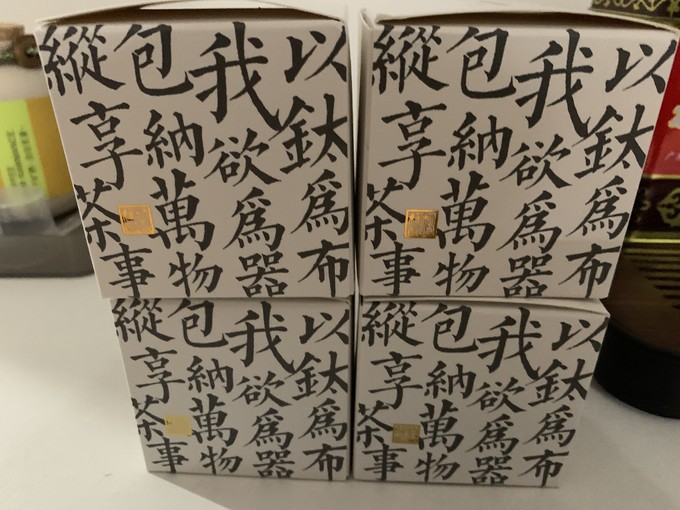 以鈦爲布
我欲爲器
包納萬物
縱享茶事
以鈦爲布
我欲爲器
包納萬物
縱享茶事
以鈦爲布
我欲爲器
包納萬物
縱享茶事
以鈦爲布
我欲爲器
包納萬物
縱享茶事